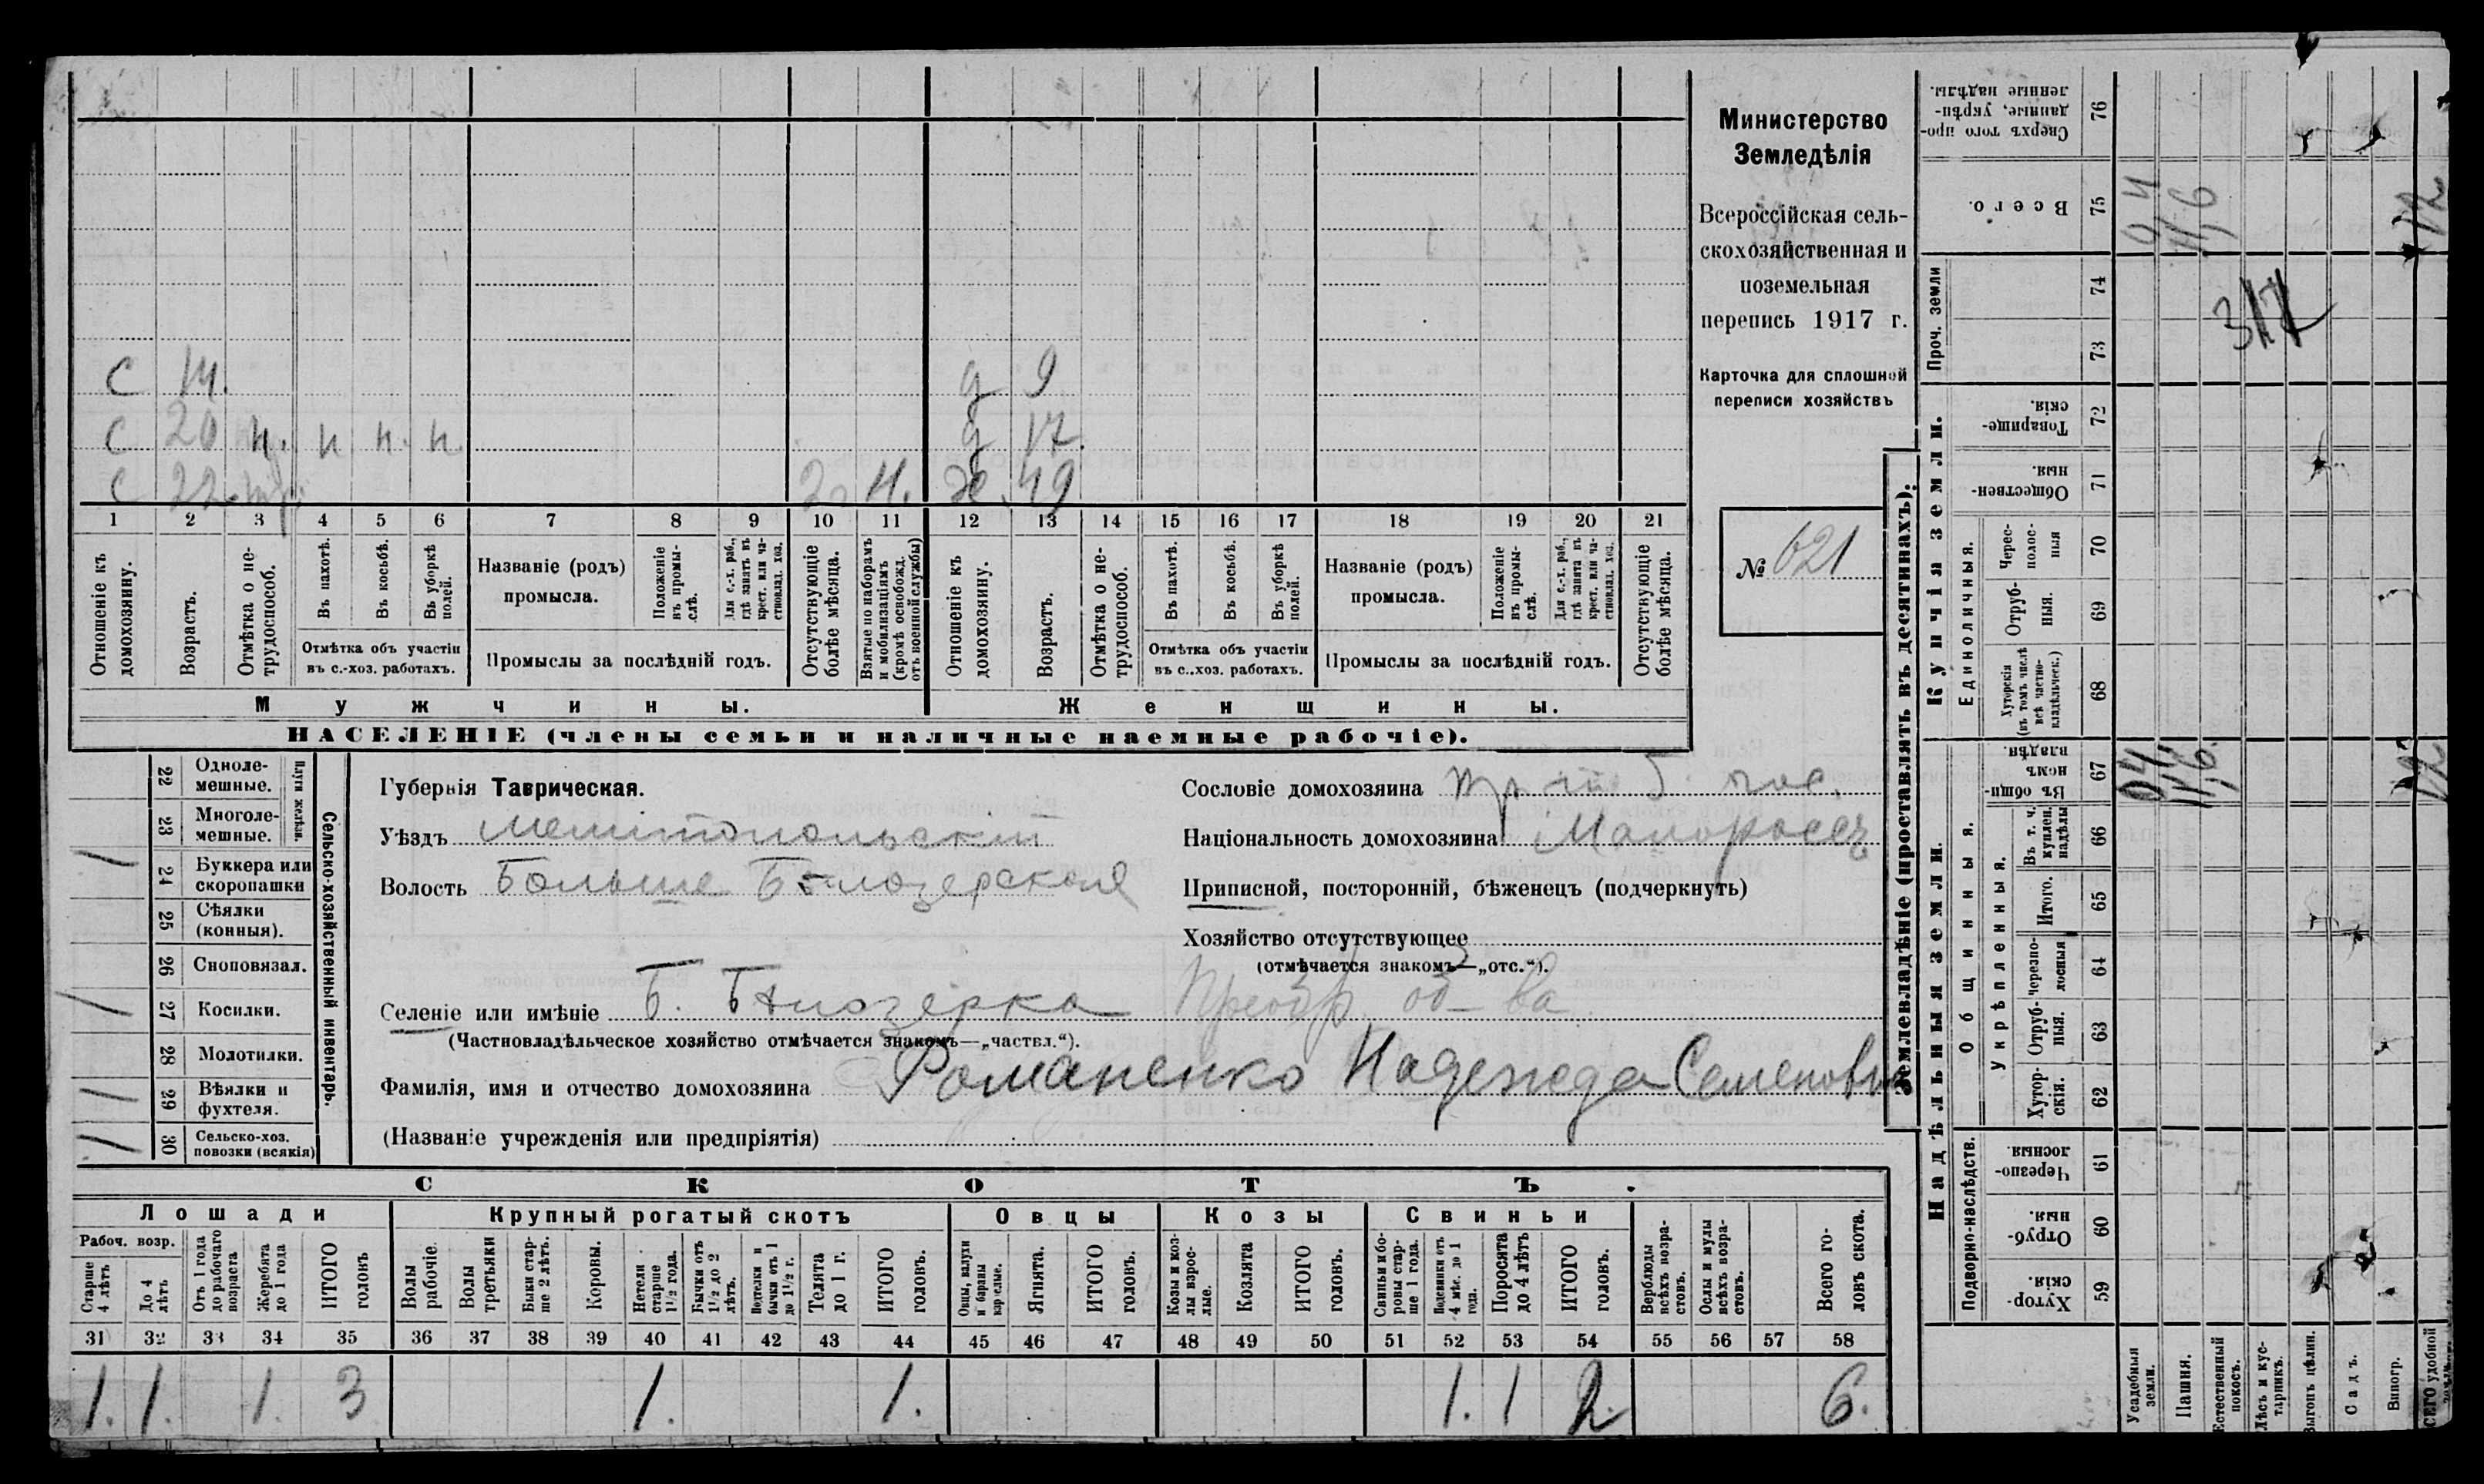 С 14. д 9
С 20 н. н. н. н. д 17.
С 22. 2 н. ж. 49
1 2 3 4 5 6 7 8 9 10 11 12 13 14 15 16 17 18 19 20 21
Отношеніе къ домохозяину.
Возрастъ.
Отмѣтка о нетрудоспособ.
Въ пахотѣ.
Въ косьбѣ.
Въ уборкѣ полей.
Отмѣтка объ участіи въ с.-хоз. работахъ.
Названіе (родъ) промысла.
Положеніе въ промыслѣ.
Для с.-х. раб., гдѣ занятъ въ крест. или частновлад. хоз.
Промыслы за послѣдній годъ.
Отсутствующіе болѣе мѣсяца.
Взятые по наборамъ и мобилизаціямъ (кромѣ освобожд. отъ военной службы)
Отношеніе къ домохозяину.
Возрастъ.
Отмѣтка о нетрудоспособ.
Въ пахотѣ.
Въ косьбѣ.
Въ уборкѣ полей.
Отмѣтка объ участіи въ с.-хоз. работахъ.
Названіе (родъ) промысла.
Положеніе въ промыслѣ.
Для с.-х. раб., гдѣ занята въ крест. или частновлад. хоз.
Промыслы за послѣдній годъ.
Отсутствующіе болѣе мѣсяца.
Мужчины. Женщины.
НАСЕЛЕНІЕ (члены семьи и наличные наемные рабочіе).
Министерство
Земледѣлія
Всероссійская сель-
скохозяйственная и
поземельная
перепись 1917 г.
Карточка для сплошной
переписи хозяйствъ
№ 621
22 Одноле-мешные.
23 Многоле-мешные.
Плуги желѣзн.
/ 24 Буккера или скоропашки
25 Сѣялки (конныя).
26 Сноповязал.
/ 27 Косилки.
28 Молотилки.
/ 29 Вѣялки и фухтеля.
/ 30 Сельско-хоз. повозки (всякія)
Сельско-хозяйственный инвентарь.
Губернія Таврическая.
Уѣздъ Мелитопольскій
Волость Больше Бѣлозерская
Сословіе домохозяина
Національность домохозяина Малороссъ
Приписной, посторонній, бѣженецъ (подчеркнуть)
Хозяйство отсутствующее
(отмѣчается знакомъ—„отс.“).
Селеніе или имѣніе Б. Бѣлозерка Преобр. об-ва
(Частновладѣльческое хозяйство отмѣчается знакомъ—„частвл.“).
Фамилія, имя и отчество домохозяина Романенко Надежда Семеновн
(Названіе учрежденія или предпріятія)
СКОТЪ.
Лошади Крупный рогатый скотъ Овцы Козы Свиньи
Рабоч. возр.
Старше 4 лѣтъ
До 4 лѣтъ
Отъ 1 года до рабочаго возраста
Жеребята до 1 года
ИТОГО головъ
Волы рабочіе.
Волы третьяки
Быки старше 2 лѣтъ.
Коровы.
Нетели старше 1½ года.
Бычки отъ 1½ до 2 лѣтъ.
Подтелки и бычки отъ 1 до 1½ г.
Телята до 1 г.
ИТОГО головъ.
Овцы, валухи и бараны взрослые.
Ягнята.
ИТОГО головъ.
Козы и козлы взрослые.
Козлята
ИТОГО головъ.
Свиньи и боровы старше 1 года.
Подсвинки отъ 4 мѣс. до 1 года.
Поросята до 4 лѣтъ
ИТОГО головъ.
Верблюды всѣхъ возрастовъ.
Ослы и мулы всѣхъ возрастовъ.
Всего головъ скота.
31 32 33 34 35 36 37 38 39 40 41 42 43 44 45 46 47 48 49 50 51 52 53 54 55 56 57 58
1. 1. 1. 3 1. 1. 1. 1 2. 6.
Землевладѣніе (проставлять въ десятинахъ).
Купчія земли.
Надѣльныя земли.
Сверхъ того проданные, укрѣпленные надѣлы. 76
Всего. 75 0,4 11,6 12
Проч. земли 74 73
317
Товарищескія. 72
Общественныя. 71
Единоличныя.
Черес-полосныя 70
Отрубныя. 69
Хуторскія (въ томъ числѣ всѣ частновладѣльческ.) 68
Общинныя.
Въ общинномъ владѣн. 67 0,4 11,6 12
Укрѣпленныя.
Въ т. ч. куплен. надѣлы 66
Итого. 65
Черезполосныя 64
Отрубныя. 63
Хуторскія. 62
Подворно-наслѣдств.
Черезполосныя. 61
Отрубныя. 60
Хуторскія. 59
Усадебныя земли.
Пашня.
Естественный покосъ.
Лѣсъ и кустарникъ.
Выгонъ цѣлин.
Садъ.
Виногр.
ВСЕГО удобной